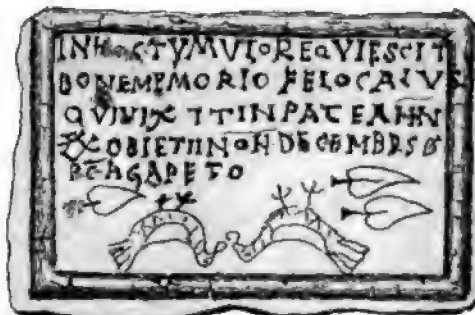 IN HOC TVMVLO REQVIESCIT
BONE MEMORIO FELOCALVS
QVI VIXIT IN PACE ANN
OBIET II NON DECEMBRS
AGAPETO